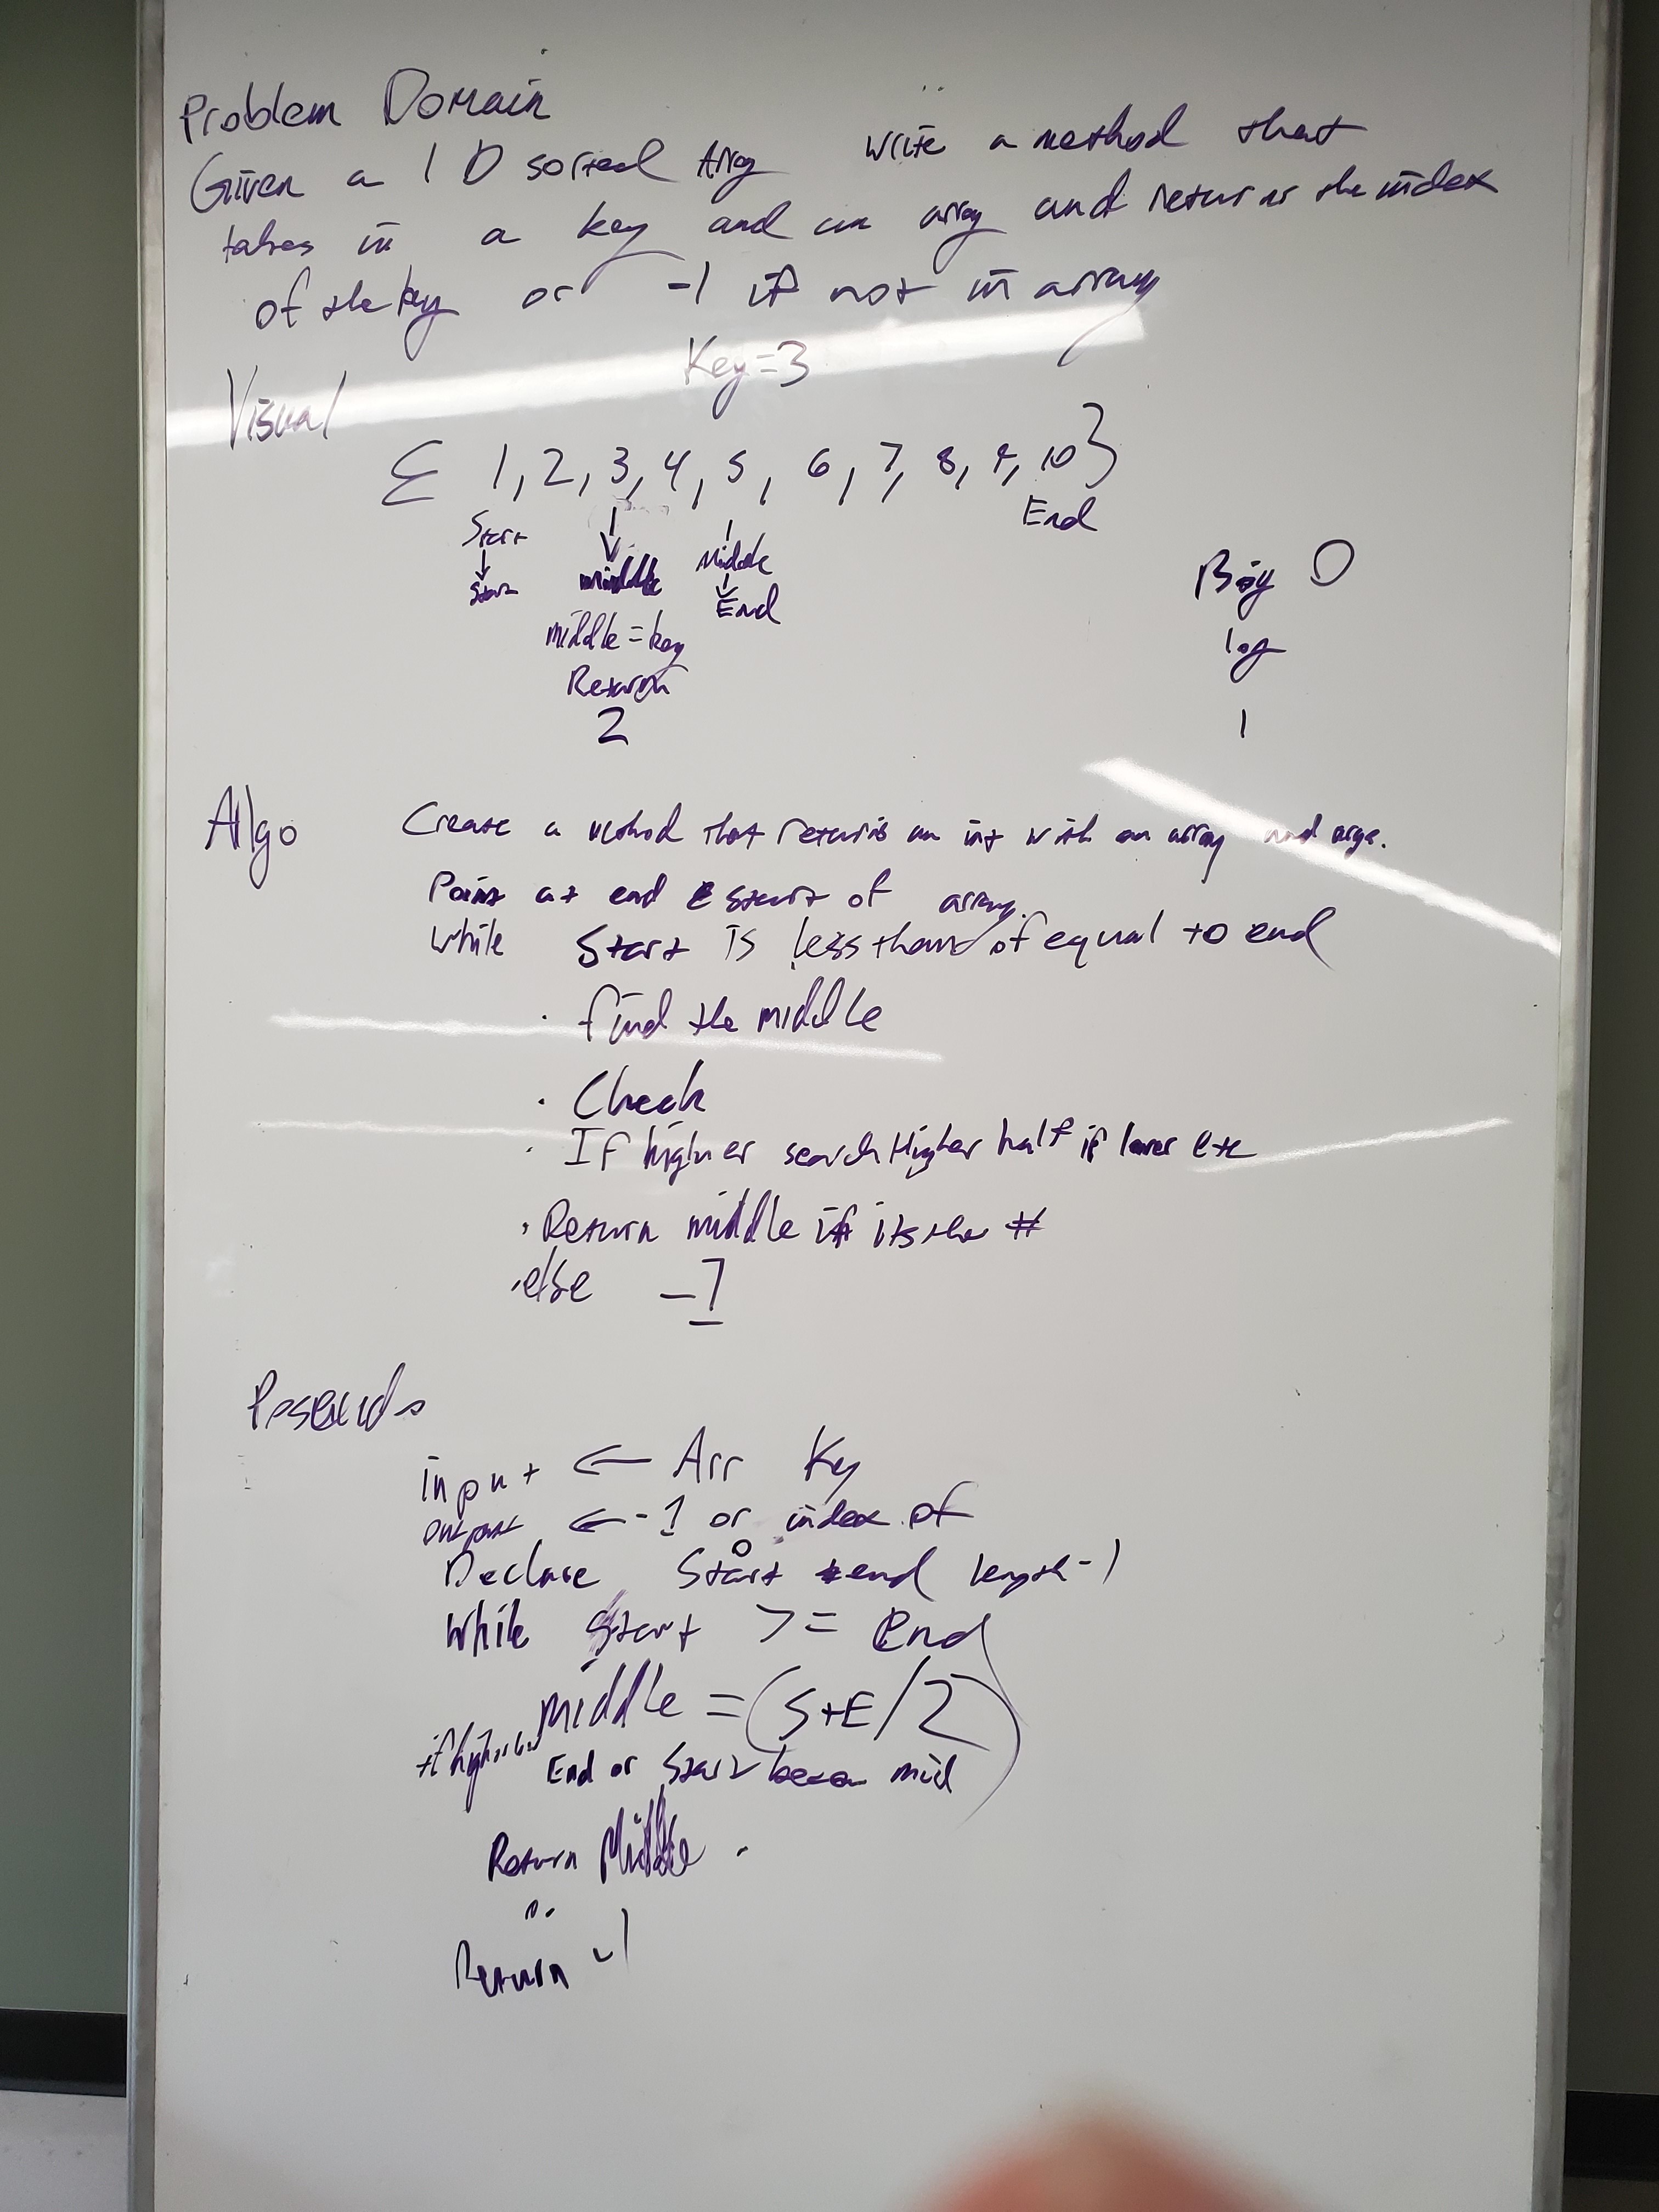 Problem Domain
Given a 1 D sorted Array write a method that
takes in a key and an array and returns the index
of the key or -1 if not in array
Key=3
Visual
{ 1, 2, 3, 4, 5, 6, 7, 8, 9, 10}
Start middle Middle End
Start End
middle = key
Return
2
Big O
log
1
Algo Create a method that returns an int with an array and args.
Point at end & start of array.
While Start is less than of equal to end
· find the middle
· Check
· If higher search Higher half if lower etc
· Return middle if its the #
· else -1
Pseudo
input ← Arr Key
output ← -1 or index of
Declare Start 0 end length-1
While Start >= end
middle = (S+E/2)
if high or low End or Start become mid
Return Middle
Return -1